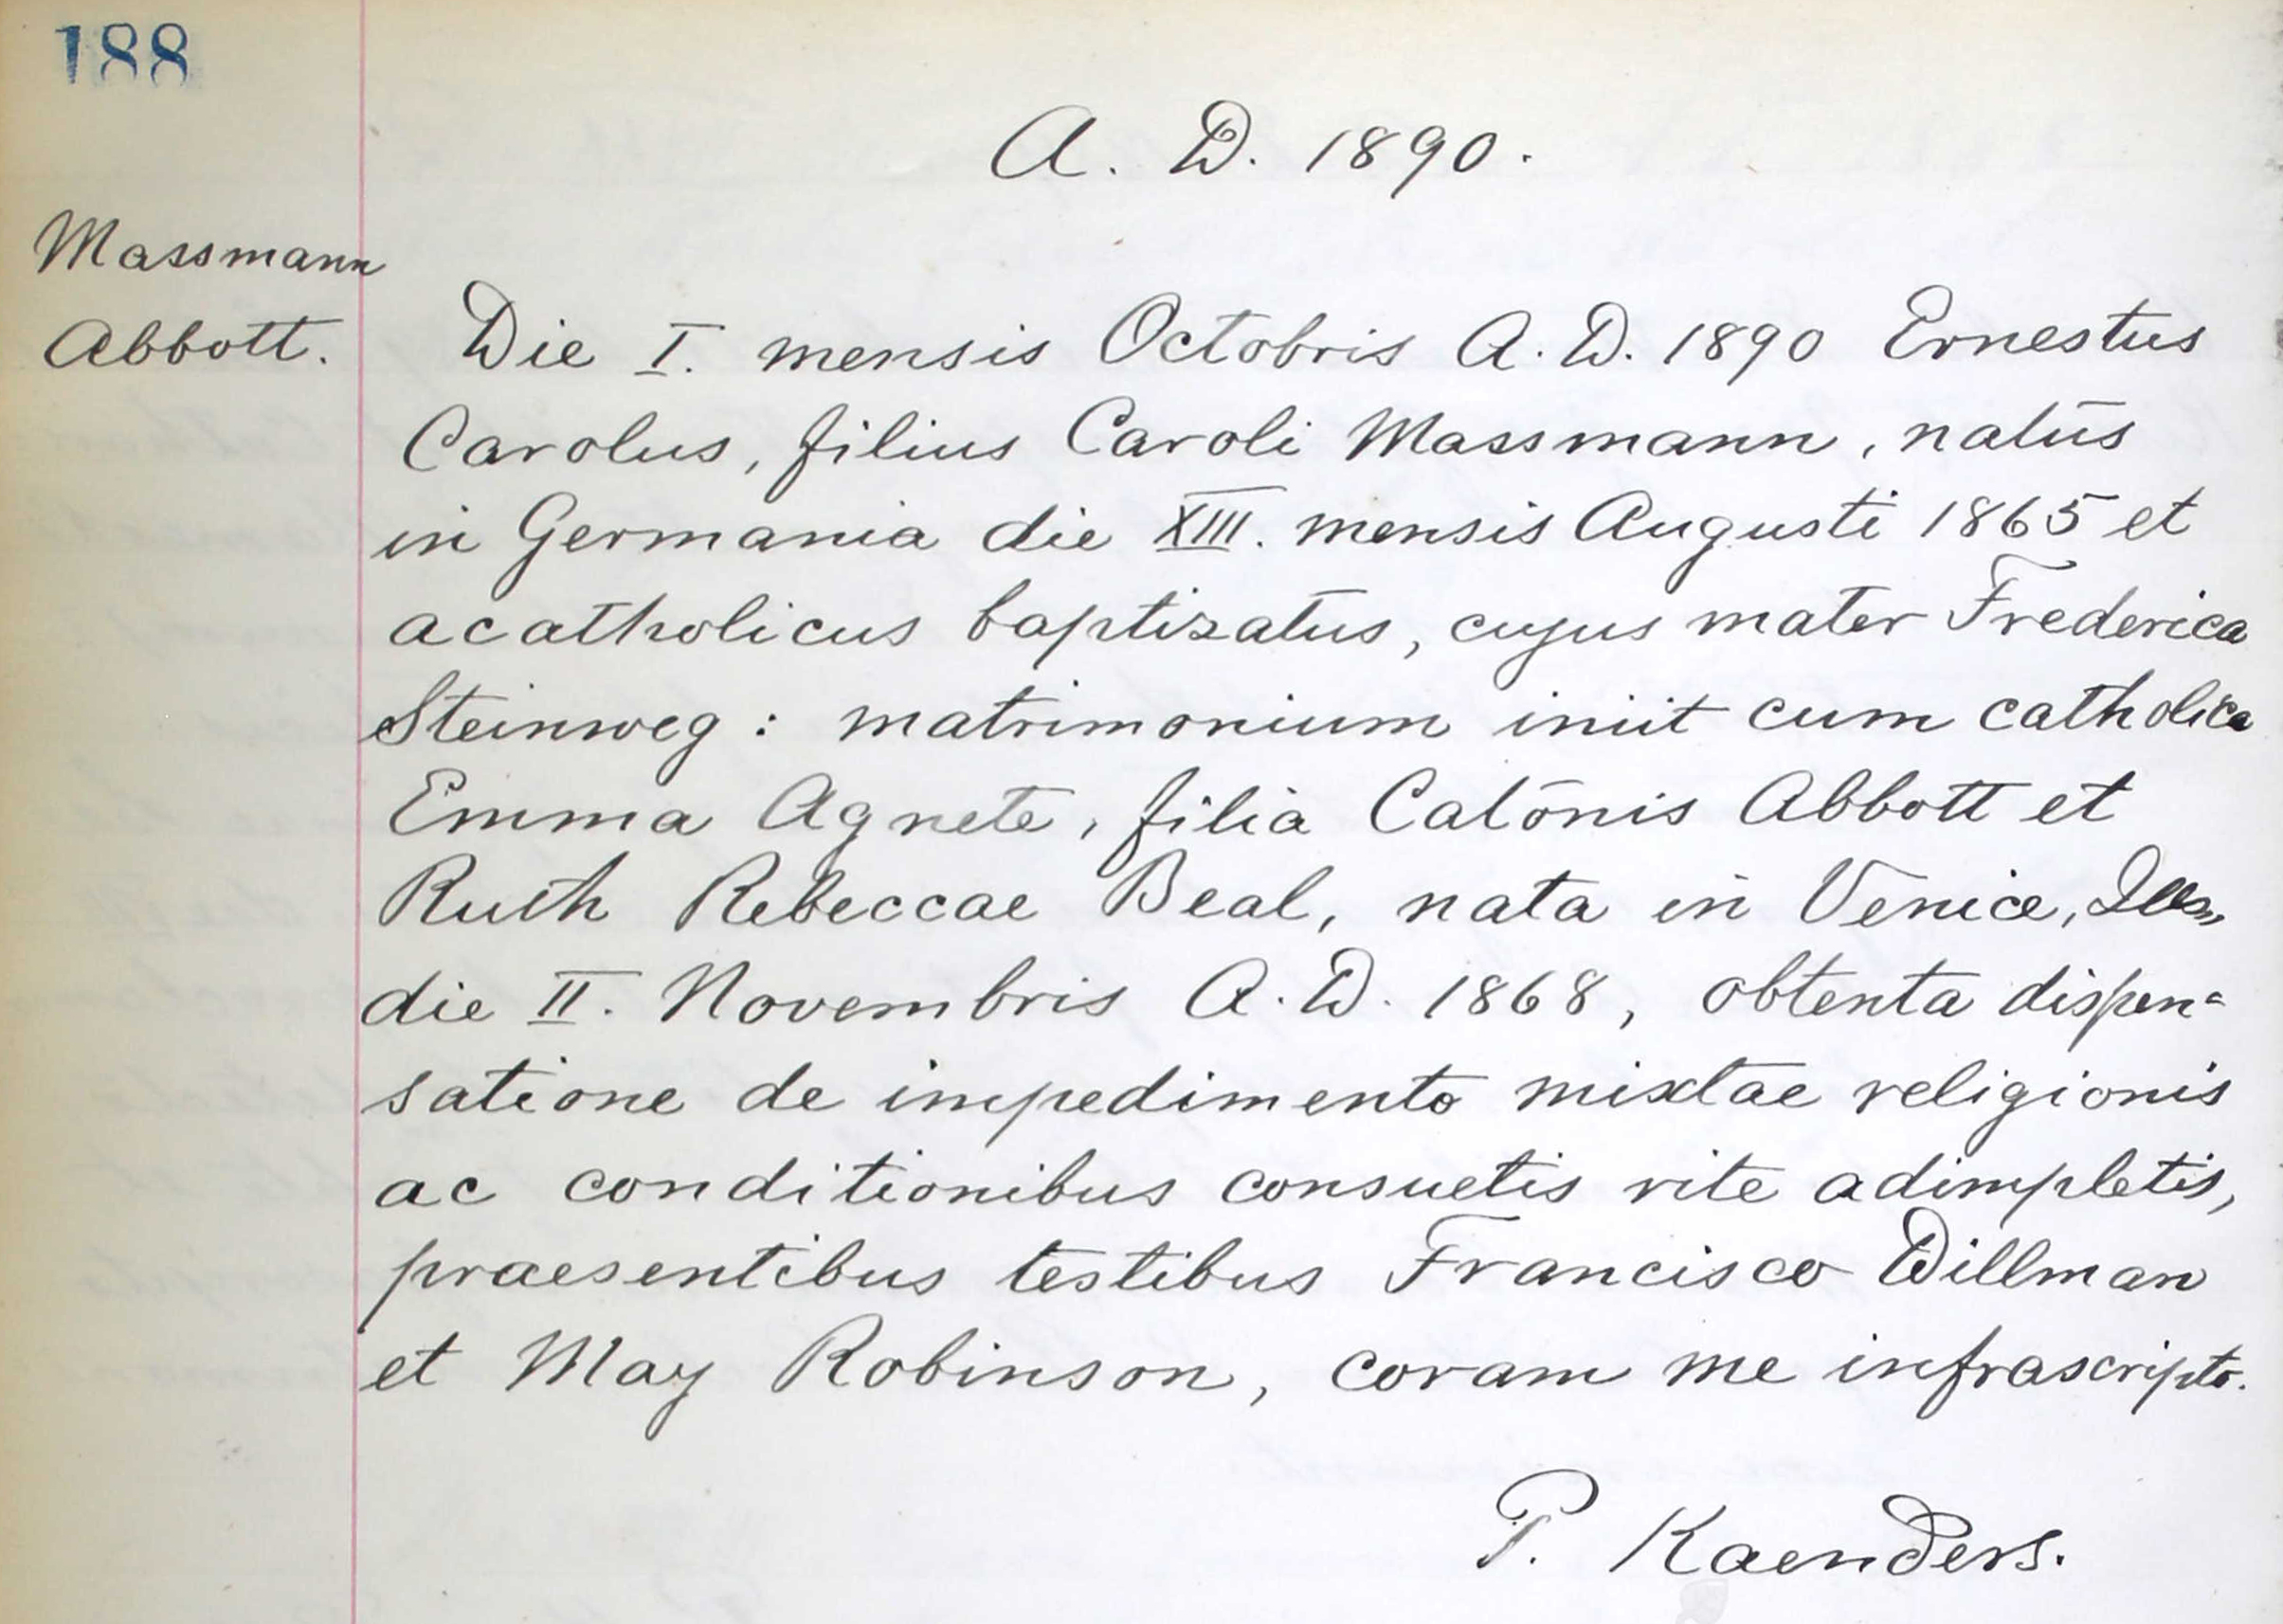 188
A. D. 1890.
Massmann
Abbott.
Die I. mensis Octobris A. D. 1890 Ernestus
Carolus, filius Caroli Massmann, natus
in Germania die XIII. mensis Augusti 1865 et
acatholicus baptizatus, cujus mater Frederica
Steinweg: matrimonium iniit cum catholica
Emma Agnete, filia Catonis Abbott et
Ruth Rebeccae Beal, nata in Venice,
die II. Novembris A. D. 1868, obtenta dispen-
satione de impedimento mixtae religionis
ac conditionibus consuetis rite adimpletis,
praesentibus testibus Francisco Dillman
et May Robinson, coram me infrascripto.
P. Kaenders.